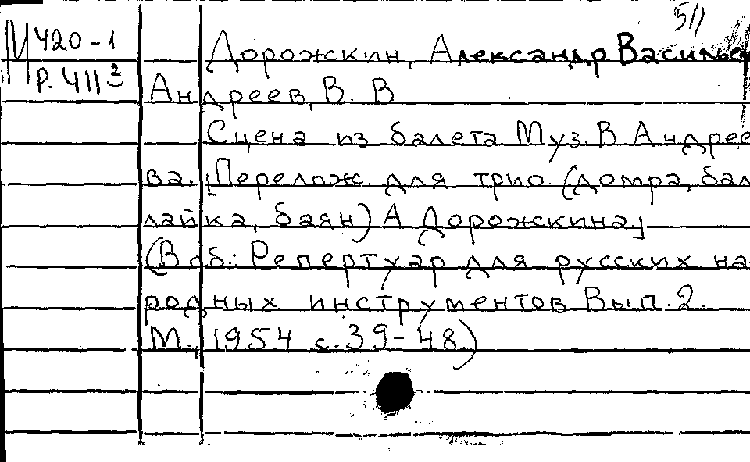 511
М 420-1
Р. 411³
Дорожкин, Александр Василье
Андреев, В. В
Сцена из балета Муз. В Андрее
ва. [Перелож. для трио (домра, бала
лайка, баян) А Дорожкина]
(В сб.: Репертуар для русских на
родных инструментов Вып. 2.
М., 1954 с. 39-48.)